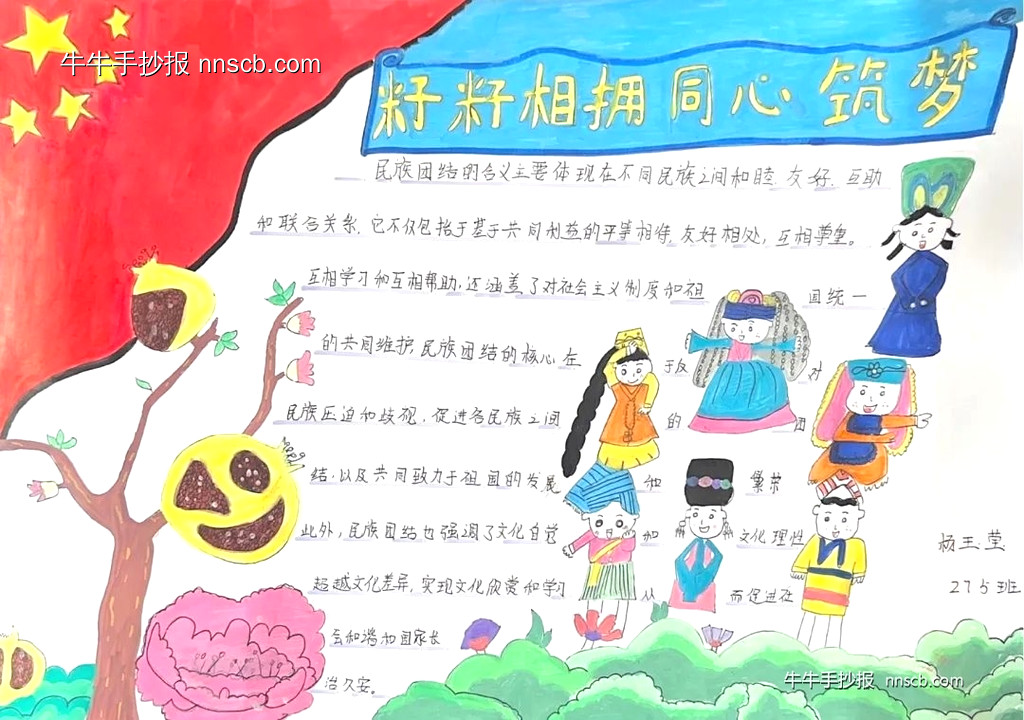 牛牛手抄报 nnscb.com
籽籽相拥同心筑梦
民族团结的含义主要体现在不同民族之间和睦、友好、互助
和联合关系。它不仅包括于基于共同利益的平等相待,友好相处,互相尊重。
互相学习和互相帮助,还涵盖了对社会主义制度和祖 国统一
的共同维护,民族团结的核心在 于反 对
民族压迫和歧视,促进各民族之间 的 团
结,以及共同致力于祖国的发展 和 繁荣
此外,民族团结也强调了文化自觉 和 文化理性
超越文化差异,实现文化欣赏和学习 从 而促进社
会和谐和国家长
治久安。
杨玉莹
275班
牛牛手抄报 nnscb.com